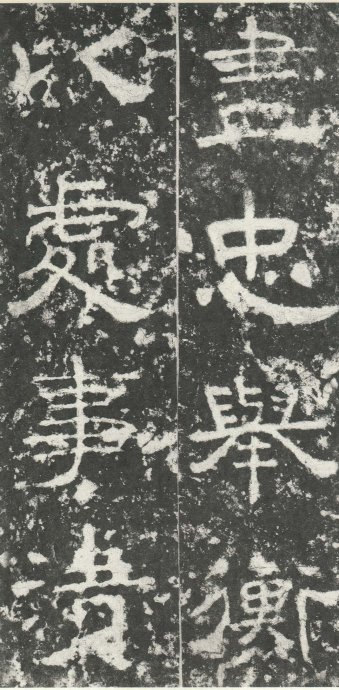 盡忠舉衡
以處事清